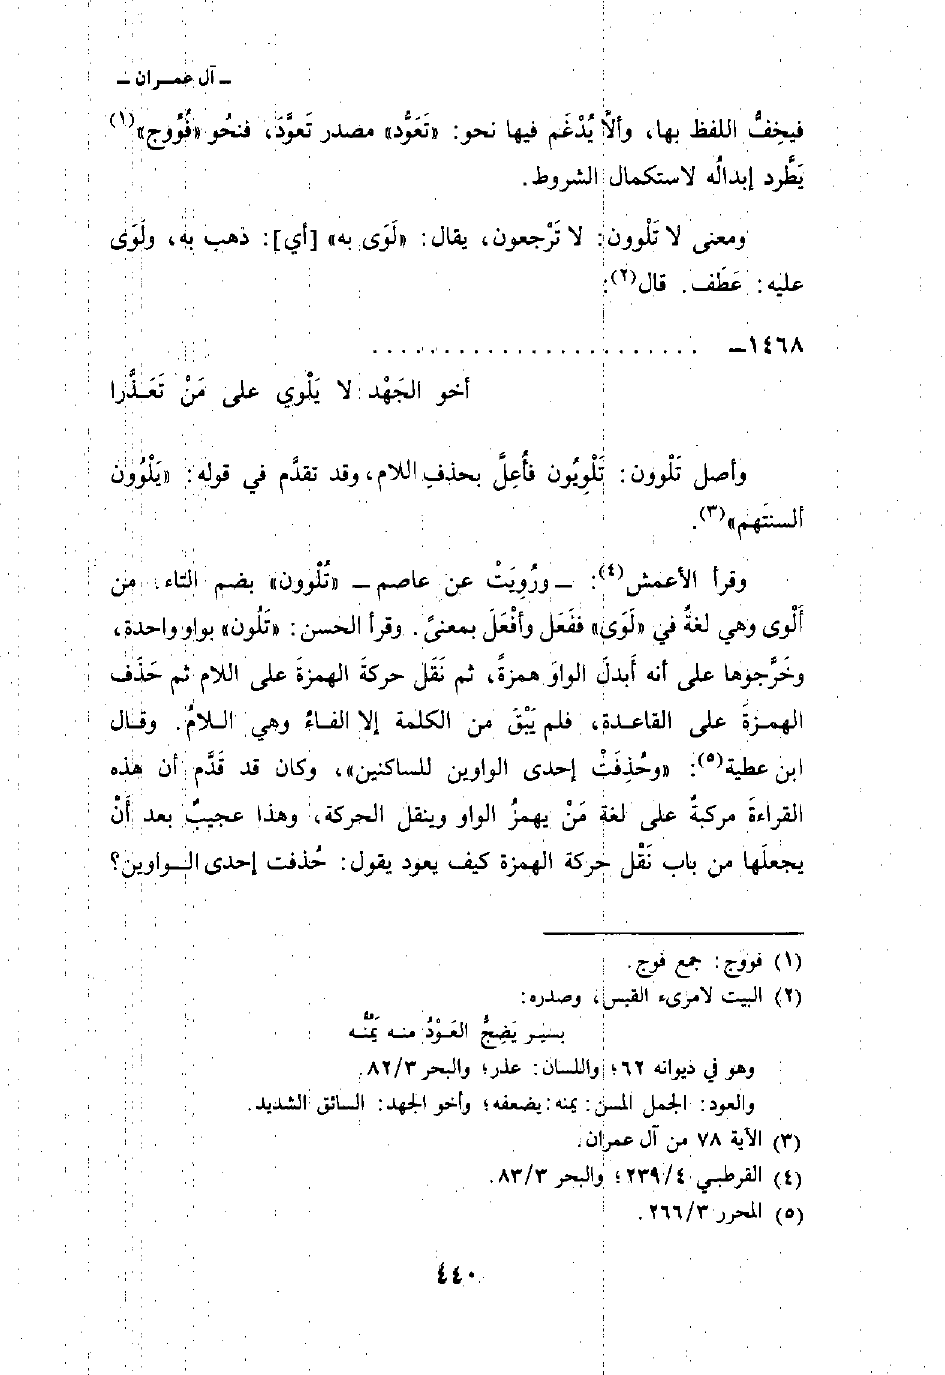 ـ آل عمـران ـ
فيخِفُّ اللفظ بها، وألاَّ يُدْغَم فيها نحو: «تَعَوُّد» مصدر تَعوَّدَ، فنحُو «فُوُوج»(١)
يَطَّرد إبدالُه لاستكمال الشروط.
ومعنى لا تَلْوون: لا تَرْجعون، يقال: «لَوَى به» [أي]: ذهب به، ولَوَى
عليه: عَطَف. قال(٢):
١٤٦٨ـ .......................
أخو الجَهْد لا يَلْوي على مَنْ تَعَـذَّرا
وأصل تَلْوون: تَلْوِيُون فأُعِلَّ بحذفِ اللام، وقد تقدَّم في قوله: «يَلْوُون
ألسنتَهم»(٣).
وقرأ الأعمش(٤): ـ ورُوِيَتْ عن عاصم ـ «تُلْوون» بضم التاء، من
أَلْوى وهي لغةٌ في «لَوَى» ففَعَل وأَفْعَلَ بمعنىً. وقرأ الحسن: «تَلُون» بواو واحدة،
وخَرَّجوها على أنه أَبدلَ الواوَ همزةً، ثم نَقَل حركةَ الهمزةَ على اللام ثم حَذَف
الهمـزةَ على القاعـدة، فلم يَبْقَ من الكلمة إلا الفـاءُ وهي الـلامُ. وقـال
ابن عطية(٥): «وحُذِفَتْ إحدى الواوين للساكنين»، وكان قد قَدَّم أن هذه
القراءةَ مركبةٌ على لغةِ مَنْ يهمزُ الواو وينقل الحركة، وهذا عجيبٌ بعد أَنْ
يجعلَها من باب نَقْل حركة الهمزة كيف يعود يقول: حُذفت إحدى الـواوين؟
(١) فووج: جمع فوج.
(٢) البيت لامرىء القيس، وصدره:
بسَيـر يَضِجُّ العَـوْدُ منـه يَمُنُّـه
وهو في ديوانه ٦٢؛ واللسان: عذر؛ والبحر ٨٢/٣.
والعود: الجمل المسن: يمنه: يضعفه؛ وأخو الجهد: السائق الشديد.
(٣) الآية ٧٨ من آل عمران.
(٤) القرطبـي ٢٣٩/٤؛ والبحر ٨٣/٣.
(٥) المحرر ٢٦٦/٣.
٤٤٠